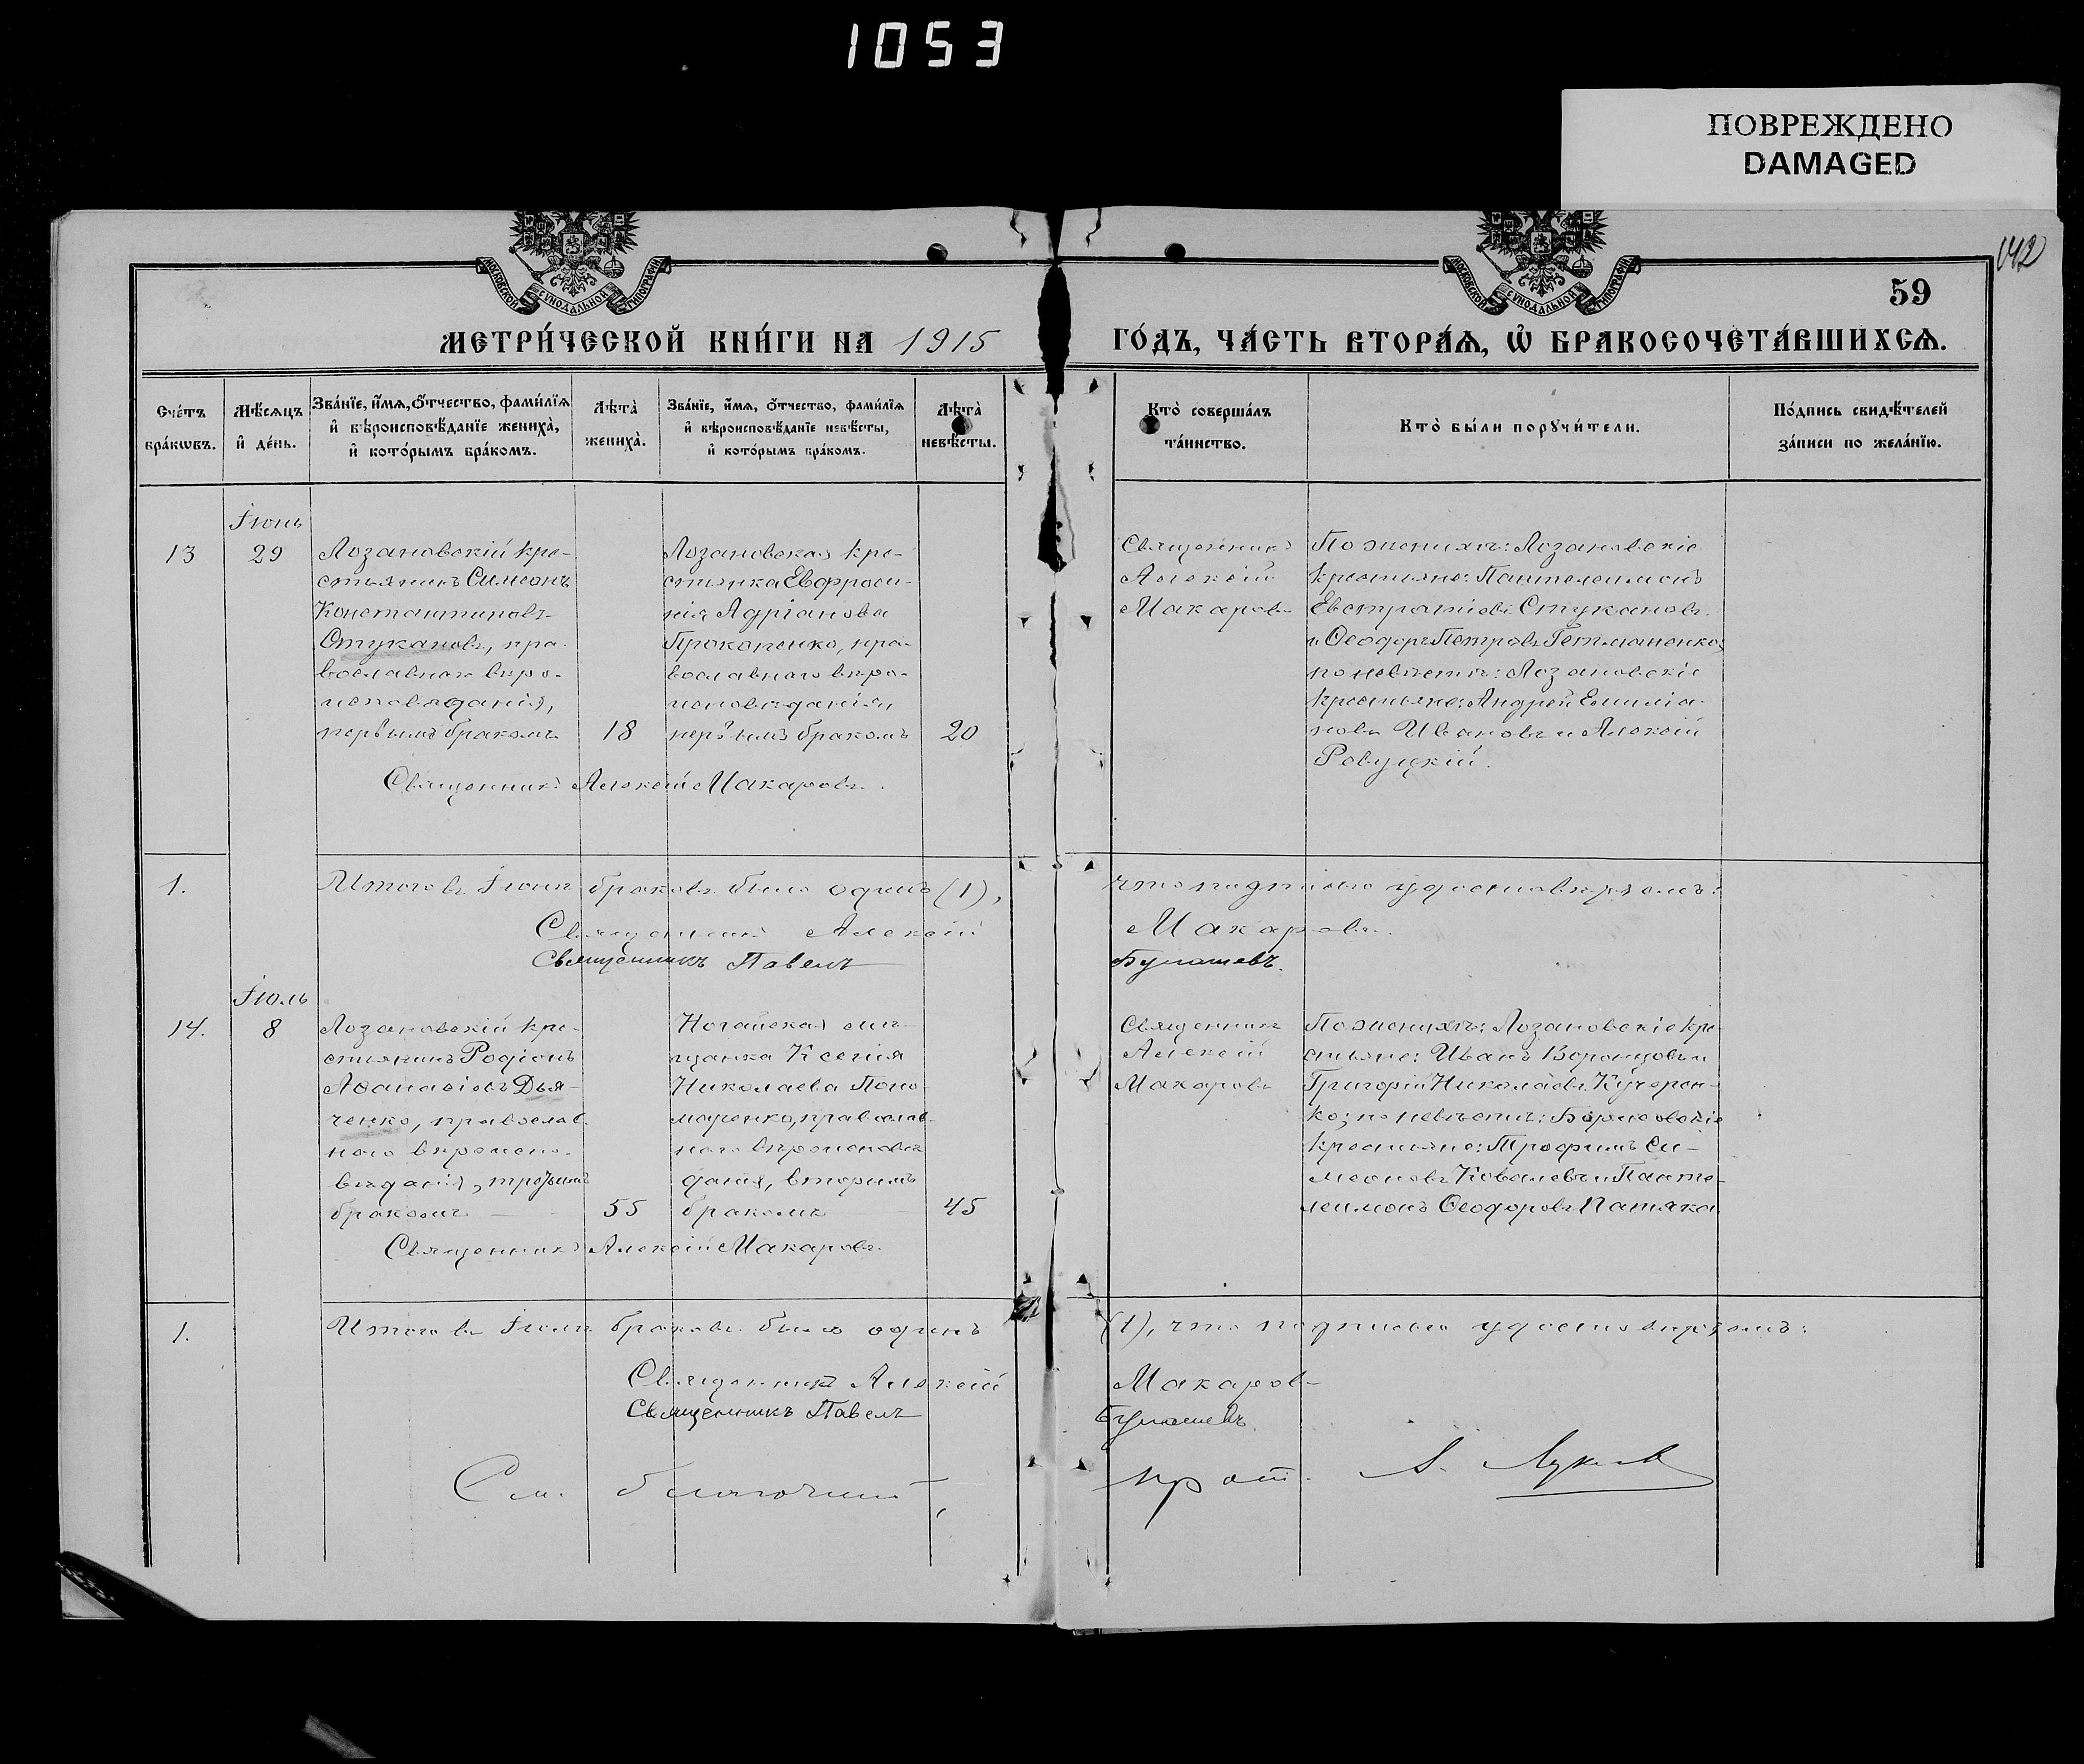 1053
ПОВРЕЖДЕНО
DAMAGED
142
59
МОСКОВСКОЙ СѴНОДАЛЬНОЙ ТИПОГРАФІИ
МОСКОВСКОЙ СѴНОДАЛЬНОЙ ТИПОГРАФІИ
МЕТРИ́ЧЕСКОЙ КНИ́ГИ НА 1915 ГО́ДЪ, ЧА́СТЬ ВТОРА́Ѧ, Ѡ҆ БРАКОСОЧЕТА́ВШИХСѦ.
Сче́тъ
бра́кѡвъ.
Мѣ́сяцъ
и҆ де́нь.
Зва́нїе, и҆́мѧ, ѻ҆́тчество, фами́лїѧ
и҆ вѣроисповѣ́данїе жениха̀,
и҆ кото́рымъ бра́комъ.
Лѣта̀
жениха̀.
Зва́нїе, и҆́мѧ, ѻ҆́тчество, фами́лїѧ
и҆ вѣроисповѣ́данїе невѣ́сты,
и҆ кото́рымъ бра́комъ.
Лѣта̀
невѣ́сты.
Кто̀ соверша́лъ
та́инство.
Кто̀ бы́ли порꙋчи́тели.
По́дпись свидѣ́телей
за́писи по жела́нїю.
13
Іюнь
29
Лозановскій кре-
стьянинъ Симеонъ
Константиновъ
Стукановъ, пра-
вославнаго вѣро-
исповѣданія,
первымъ бракомъ
18
Лозановская кре-
стьянка Евфроси-
нія Адріанова
Прокопенко, пра-
вославнаго вѣро-
исповѣданія,
первымъ бракомъ
20
Священникъ
Алексій
Макаровъ
По женихѣ: Лозановскіе
крестьяне: Пантелеимонъ
Евстратіевъ Стукановъ
и Ѳеодоръ Петровъ Гетманенко;
по невѣстѣ: Лозановскіе
крестьяне: Андрей Емиліа-
новъ Ивановъ и Алексій
Ревуцкій.
Священникъ Алексій Макаровъ.
1.
Итого въ Іюнѣ браковъ было одинъ (1), что подписью удостовѣряемъ:
Священникъ Алексій Макаровъ.
Священникъ Павелъ
14.
Іюль
8
Лозановскій кре-
стьянинъ Родіонъ
Аѳанасіевъ Дья-
ченко, православ-
наго вѣроиспо-
вѣданія, третьимъ
бракомъ
55
Ногайская мѣ-
щанка Ксенія
Николаева Поно-
маренко, православ-
наго вѣроисповѣ-
данія, вторымъ
бракомъ
45
Священникъ
Алексій
Макаровъ
По женихѣ: Лозановскіе кре-
стьяне: Иванъ Воронцовъ и
Григорій Николаевъ Кучерен-
ко; по невѣстѣ:
крестьяне: Трофимъ Си-
меоновъ Ковалевъ и Панте-
леимонъ Ѳеодоровъ
Священникъ Алексій Макаровъ.
1.
Итого въ Іюлѣ браковъ было одинъ (1), что подписью удостовѣряемъ:
Священникъ Алексій Макаровъ
Священникъ Павелъ
См. прот.